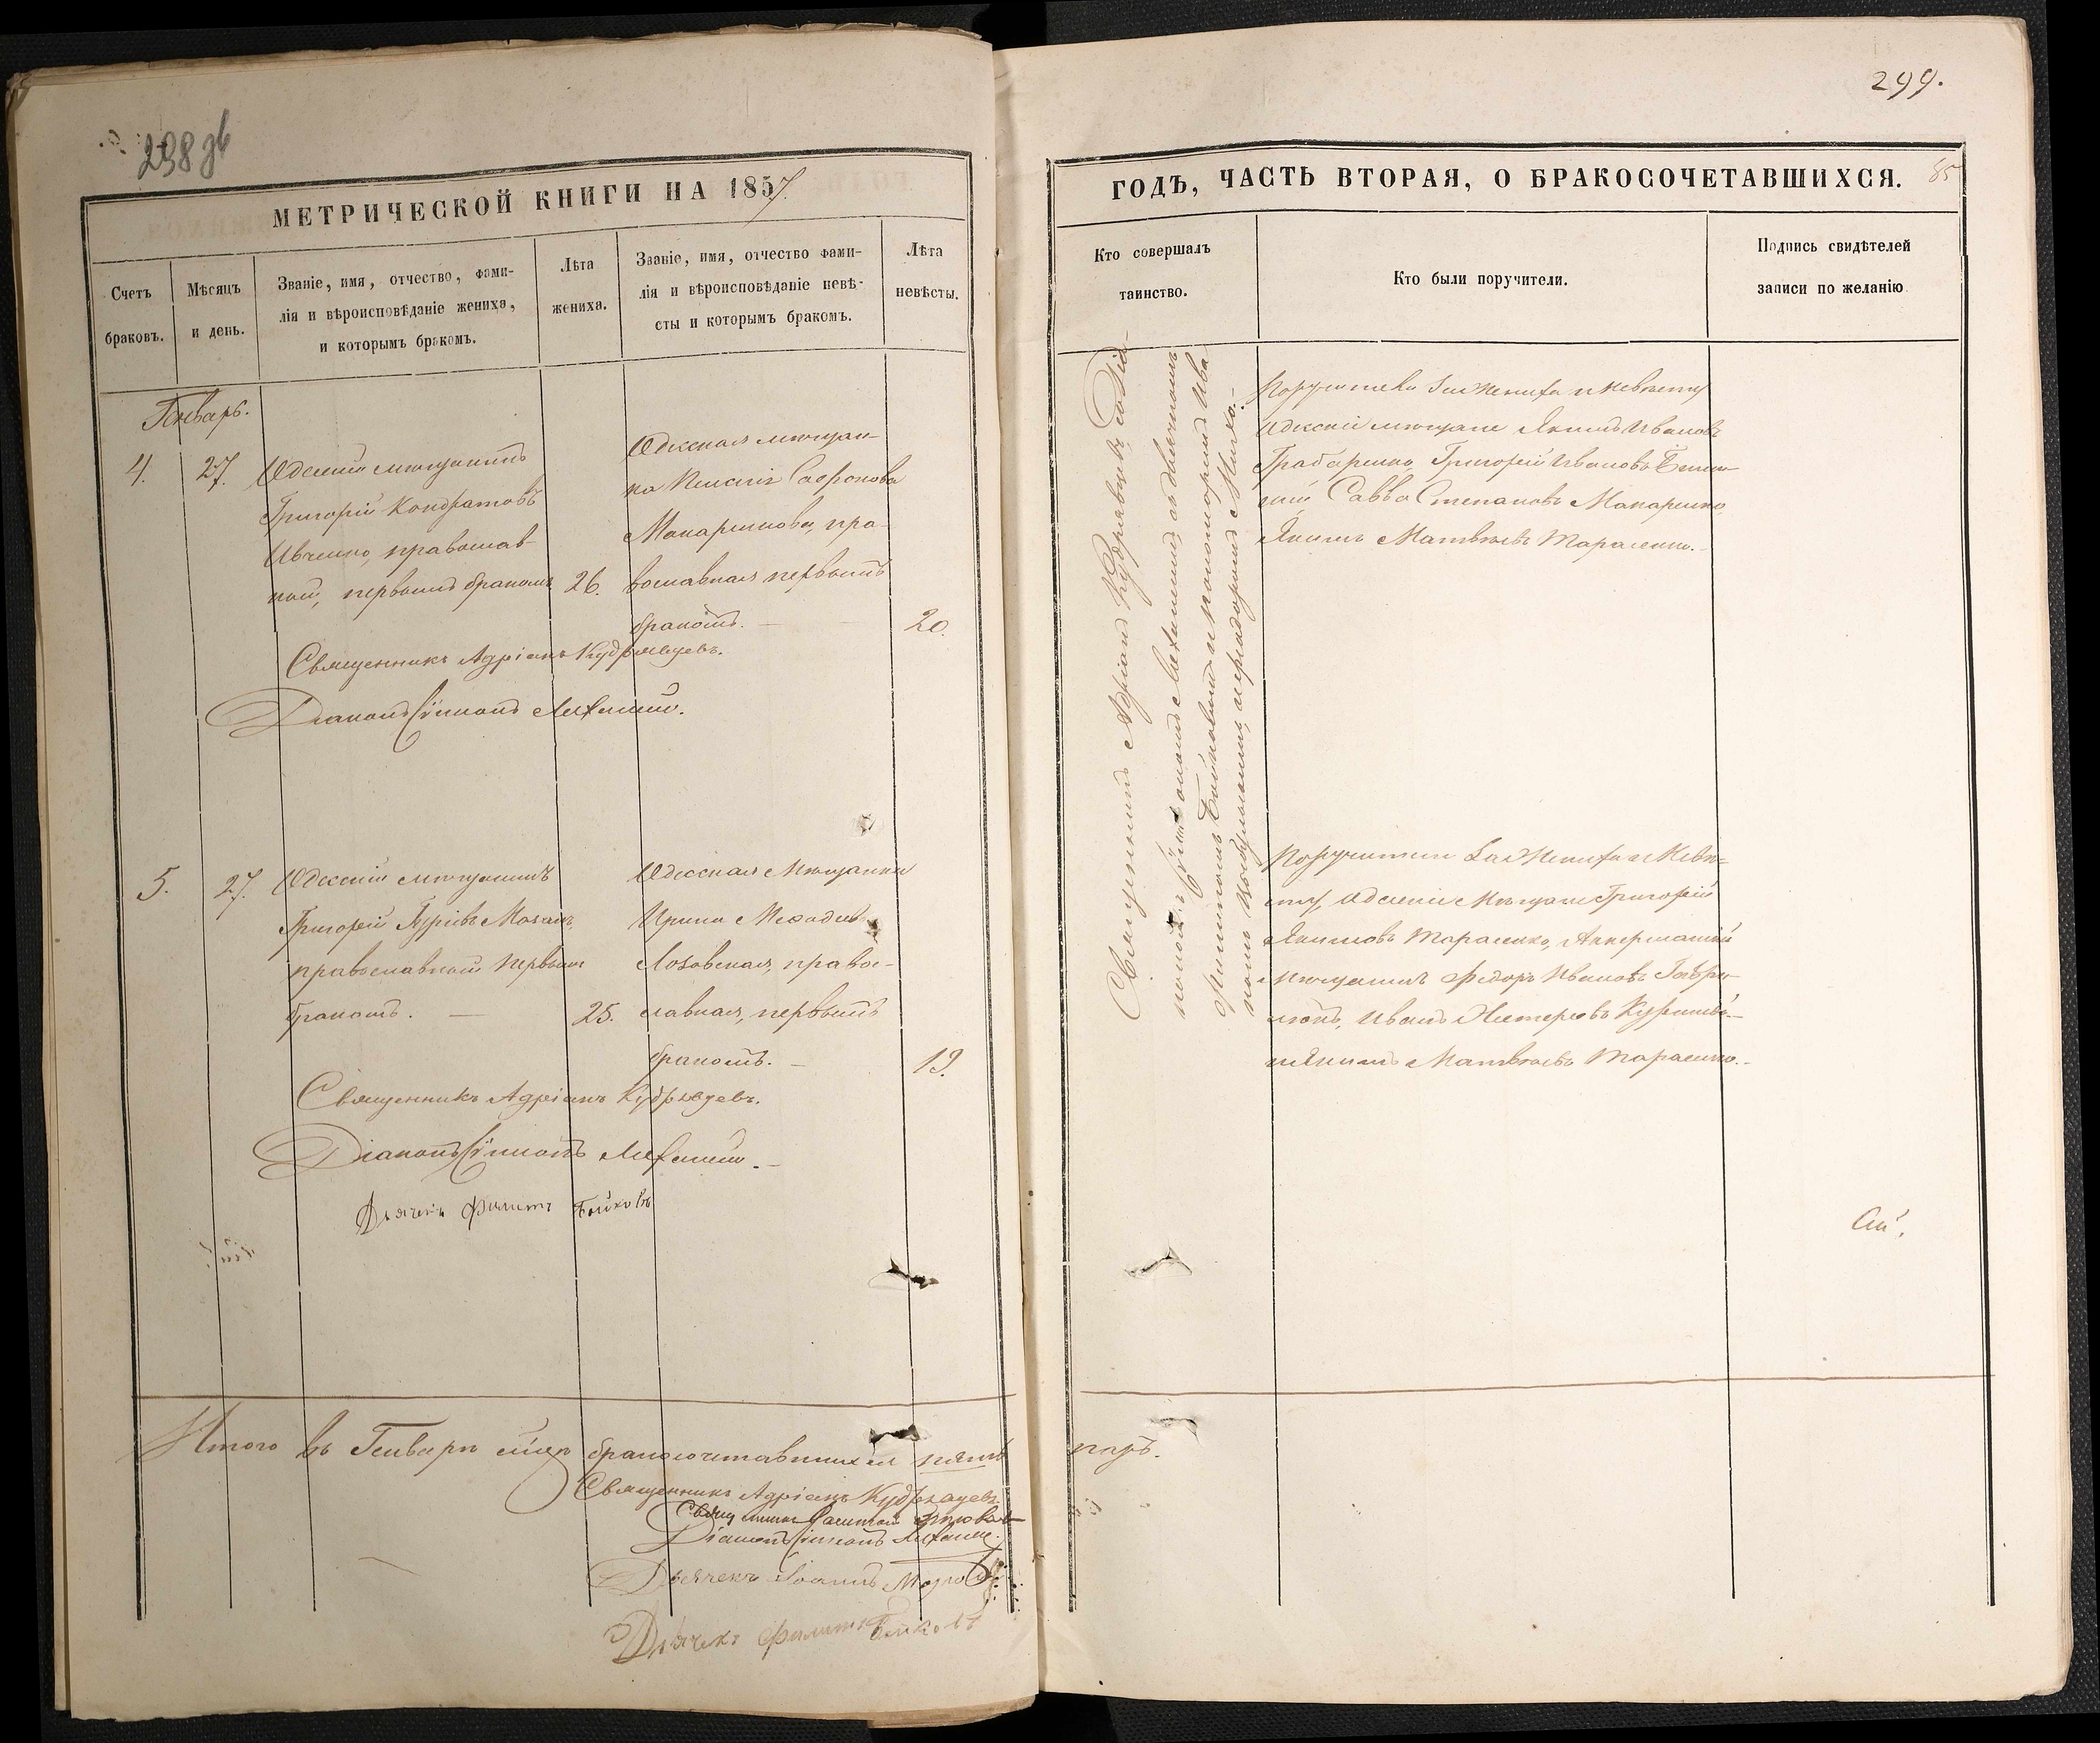 298 об
МЕТРИЧЕСКОЙ КНИГИ НА 1857.
Счетъ
браковъ.
Мѣсяцъ
и день.
Званіе, имя, отчество, фами-
лія и вѣроисповѣданіе жениха,
и которымъ бракомъ.
Лѣта
жениха.
Званіе, имя, отчество фами-
лія и вѣроисповѣданіе невѣ-
сты и которымъ бракомъ.
Лѣта
невѣсты.
Генварь.
4.
27.
Одескій мѣщанинъ
Григорій Кондратовъ
Ивченко, православ-
ный, первымъ бракомъ
26.
Одесская мѣщан-
ка Софронова
Макаренкова, пра-
вославная первымъ
бракомъ.
20.
Священникъ Адріанъ Кудрявцевъ.
Діаконъ Сѵмеонъ
5.
27.
Одесскій мѣщанинъ
Григорій
православный первымъ
бракомъ.
25.
Одесская Мѣщанка
Ирина
Лозовская, право-
славная, первымъ
бракомъ.
19.
Священникъ Адріанъ Кудрявцевъ.
Діаконъ Сѵмеонъ
Дьячекъ Филиппъ Бойковъ
Итого въ Генварѣ мцѣ бракосочетавшихся пять
Священникъ Адріанъ Кудрявцевъ.
Діаконъ Сѵмеонъ
Дьячекъ Іоаннъ
Дьячекъ Филиппъ Бойковъ
299.
85
ГОДЪ, ЧАСТЬ ВТОРАЯ, О БРАКОСОЧЕТАВШИХСЯ.
Кто совершалъ
таинство.
Кто были поручители.
Подпись свидѣтелей
записи по желанію
Священникъ Адріанъ Кудрявцевъ, съ Діа-
кономъ Сѵмеономъ съ дьячкомъ
Филиппомъ Бойковымъ и пономаремъ Ива-
номъ
Поручители за жениха и невѣсту
Одескіи мѣщане Якимъ Ивановъ
Грабаренко, Григорій Ивановъ
Савва Степановъ Макаренко
Якимъ Матвѣевъ Тарасенко.
Поручители за жениха и невѣ-
сту, Одескіе Мѣщане Григорій
Якимовъ Тарасенко, Аккерманскій
мѣщанинъ Федоръ Ивановъ
Иванъ Нестеровъ
и Якимъ Матвѣевъ Тарасенко.
паръ.